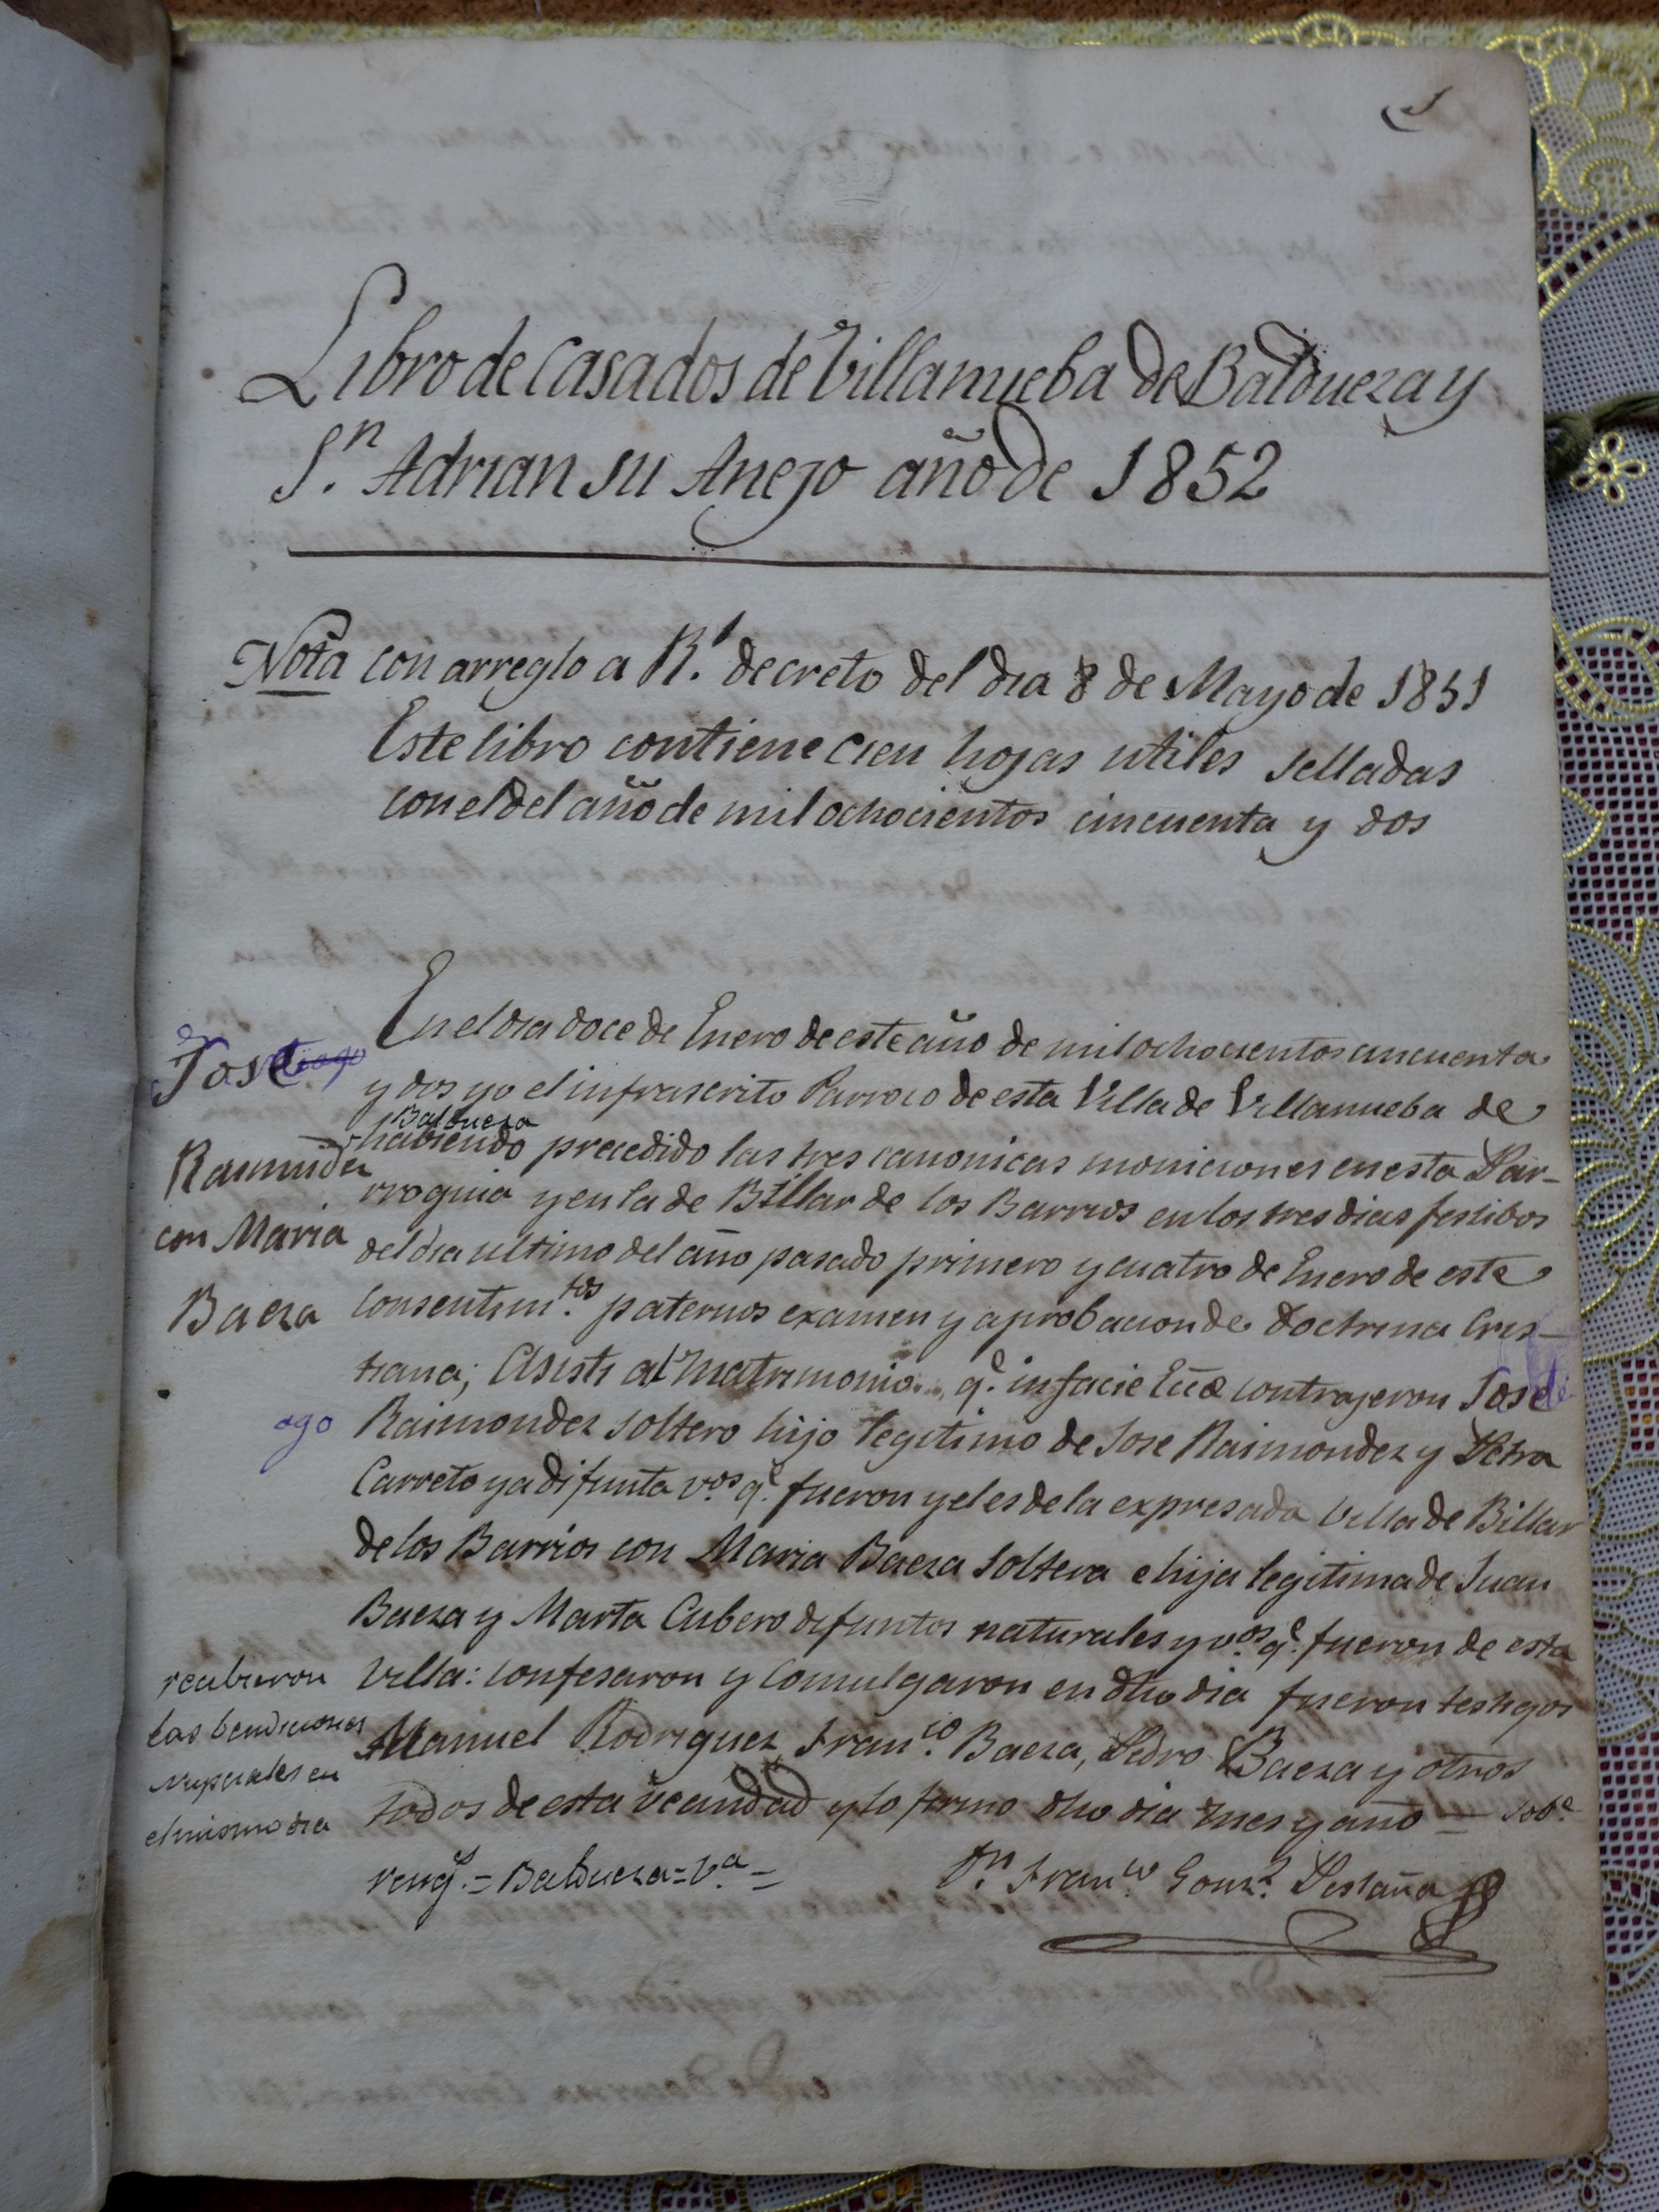 1
Libro de Casados de Villanueba de Baldueza y
S.n Adrian su Anejo año de 1852
Nota con arreglo a R.l decreto del dia 8 de Mayo de 1851
Este libro contiene cien hojas utiles selladas
con el del año de mil ochocientos cincuenta y dos
En el dia doce de Enero de este año de mil ochocientos cincuenta
y dos yo el infrascrito Parroco de esta Villa de Villanueba de
Balbueza
habiendo precedido las tres canonicas moniciones en esta Par-
rroquia y en la de Billar de los Barrios en los tres dias festibos
del dia ultimo del año pasado primero y cuatro de Enero de este
consentim.tos paternos examen y aprobacion de doctrina Cris-
tiana; Asisti al Matrimonio q.e infacie Ecæ contrajeron Jose
Raimondez soltero hijo legitimo de Jose Raimondez y Petra
Carreto ya difunta v.os q.e fueron y el es de la expresada Villa de Billar
de los Barrios con Maria Baeza soltera e hija legitima de Juan
Baeza y Marta Cubero difuntos naturales y v.os q.e fueron de esta
Villa: confesaron y comulgaron en dho dia fueron testigos
Manuel Rodriguez Fran.co Baeza, Pedro Baeza y otros
todos de esta vecindad y lo firmo dho dia mes y año = sob.e
reng.s = Balbueza = V.a =
D.n Fran.co Gonz.z Pestaña
Jose
Raimundez
con Maria
Baeza
ago
recibieron
las bendiciones
nupciales en
el mismo dia